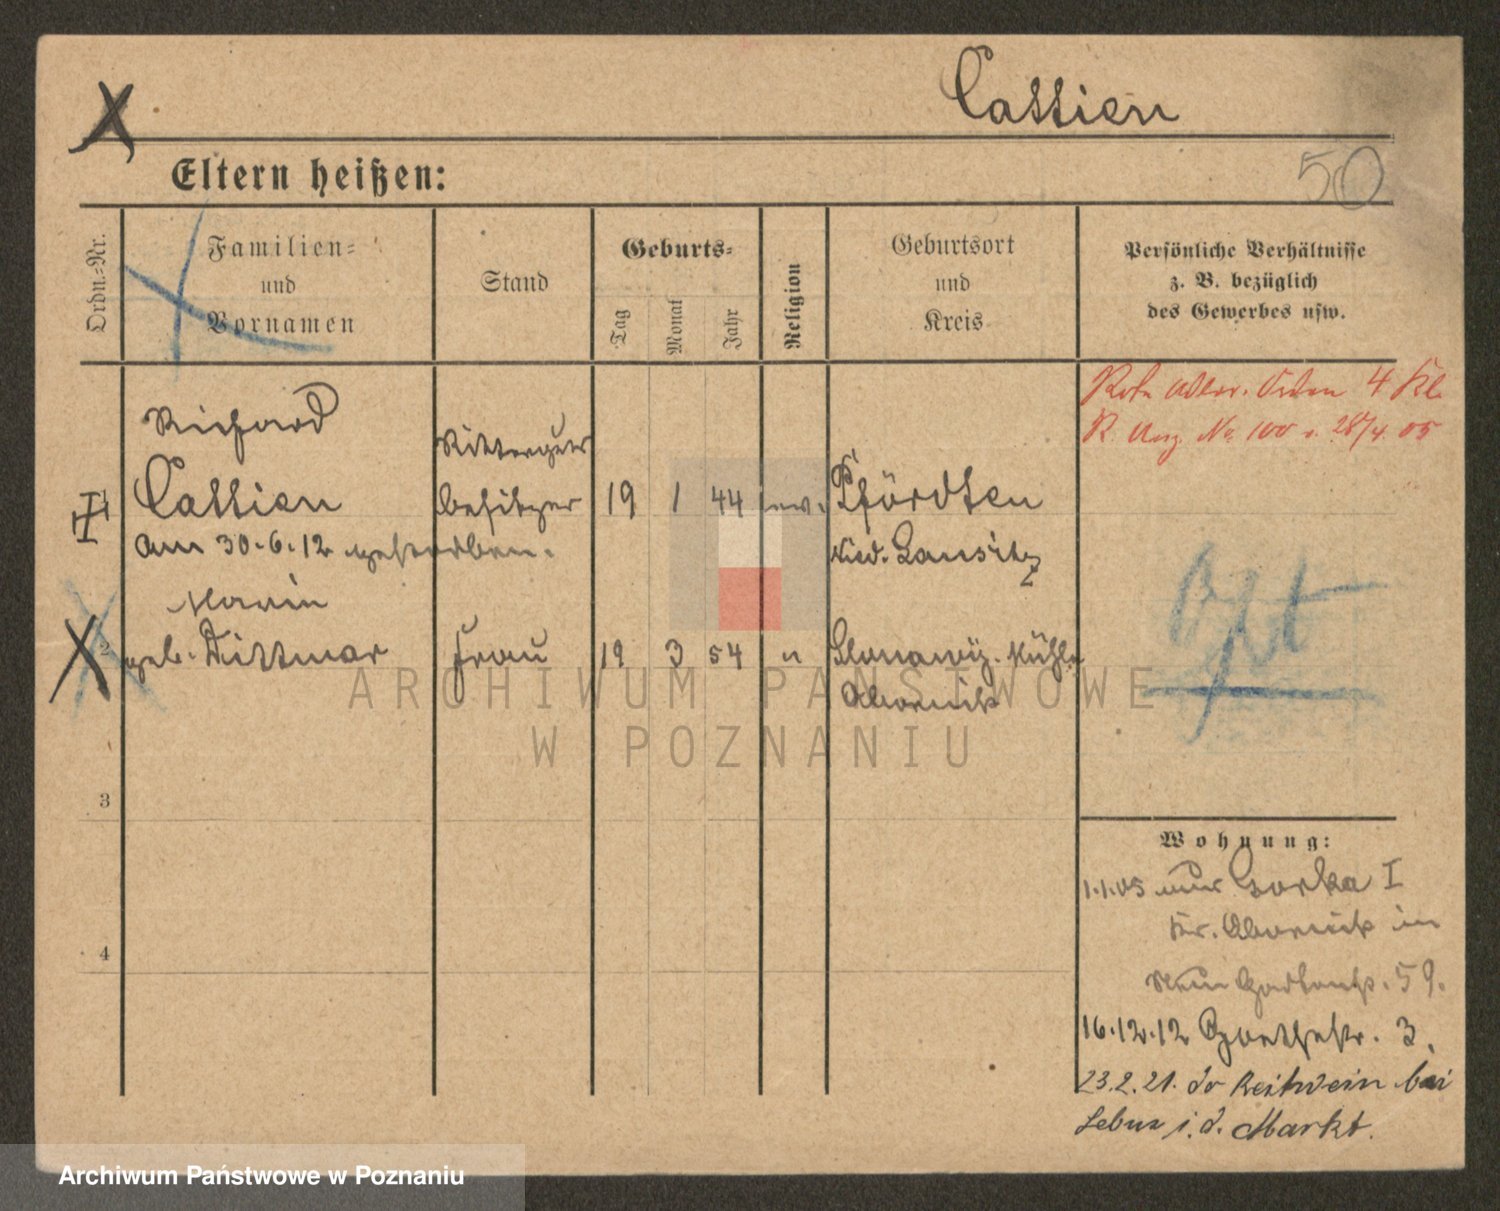 Cassien
50
Eltern heißen:
Ordn.-Nr.
Familien-
und
Vornamen
Stand
Geburts-
Tag
Monat
Jahr
Religion
Geburtsort
und
Kreis
Persönliche Verhältnisse
z. B. bezüglich
des Gewerbes usw.
Rote Adler. Orden 4 Kl.
R. Anz. No. 100 v. 28/4. 05
Richard
Cassien
Ritterguts
besitzer
19 1 44 ev. Pfördten
Nied. Lausitz
am 30.6.12 gestorben.
2
Marie
geb. Dittmar
Frau
19 3 54 " Mühle
Obornik
3
4
Wohnung:
1.1.05 von Gorka I
Kr. Obornik in
Neue Gartenstr. 59.
16.12.12 Goethestr. 3.
23.2.21. do Reitwein bei
Lebus i. d. Markt.
ARCHIWUM PAŃSTWOWE
W POZNANIU
Archiwum Państwowe w Poznaniu